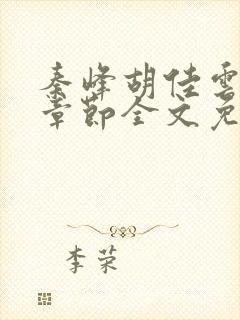 秦峰胡佳雲
章節全文免
李荣